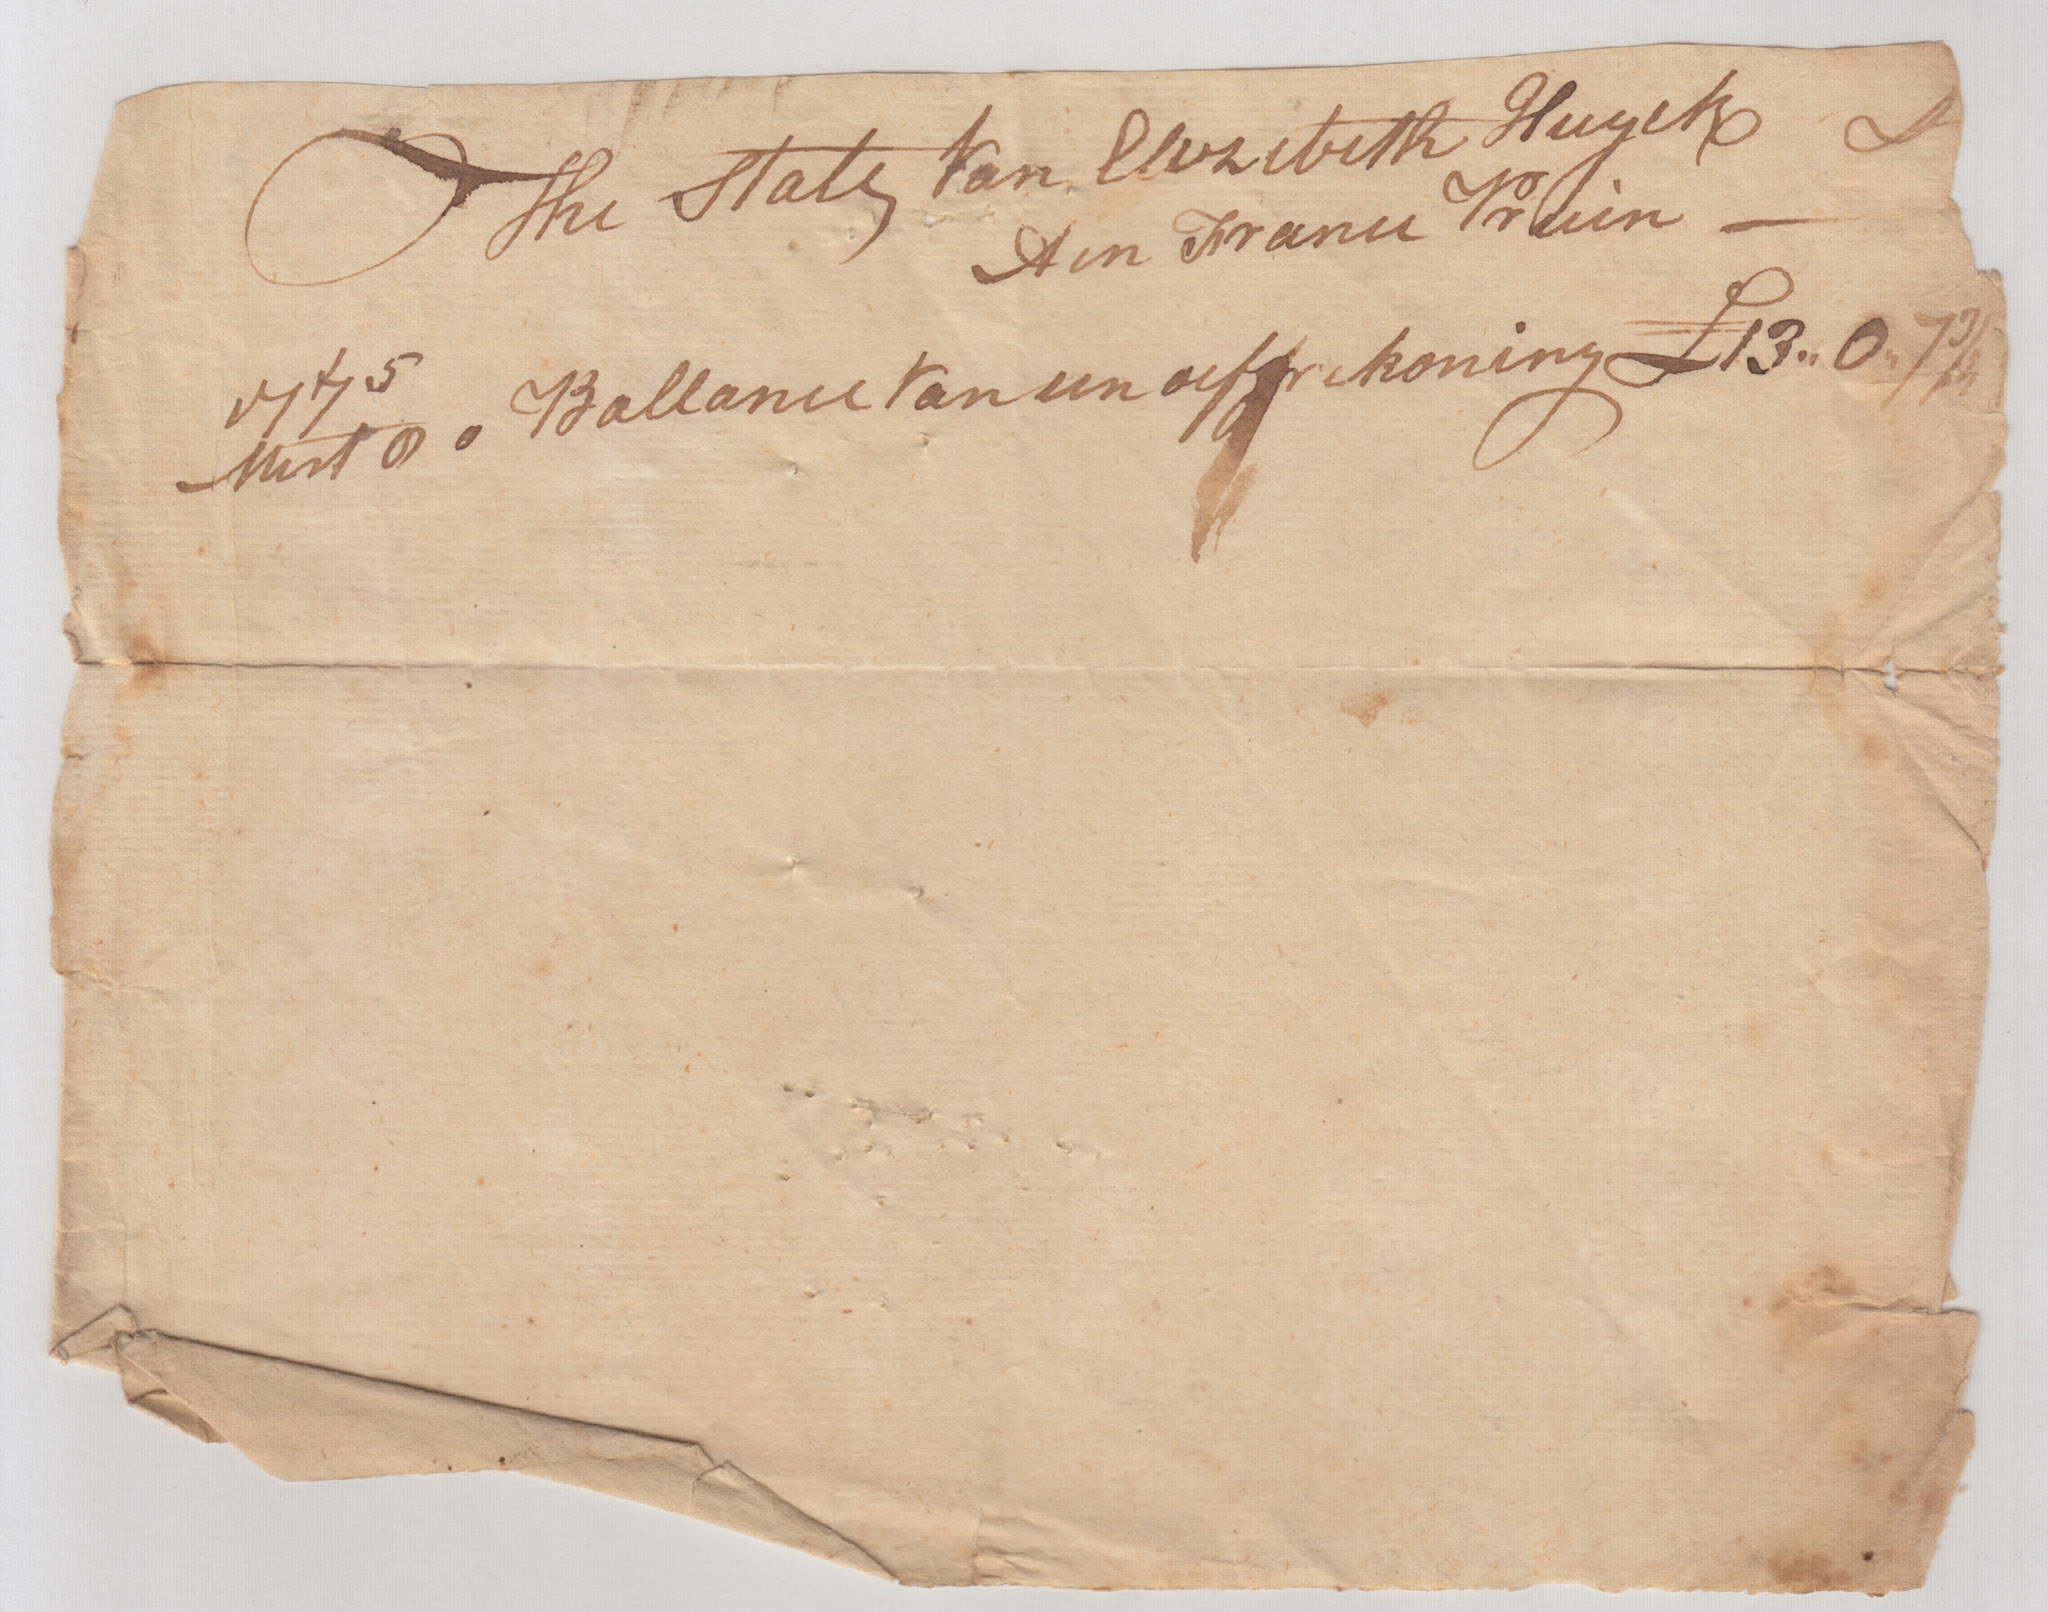 The State Van Elizebeth Huyck D
Aen France Pruin —
1775
Mert 8 . Ballance Van een affrekoning £13 .. 0 .. 7 3/4